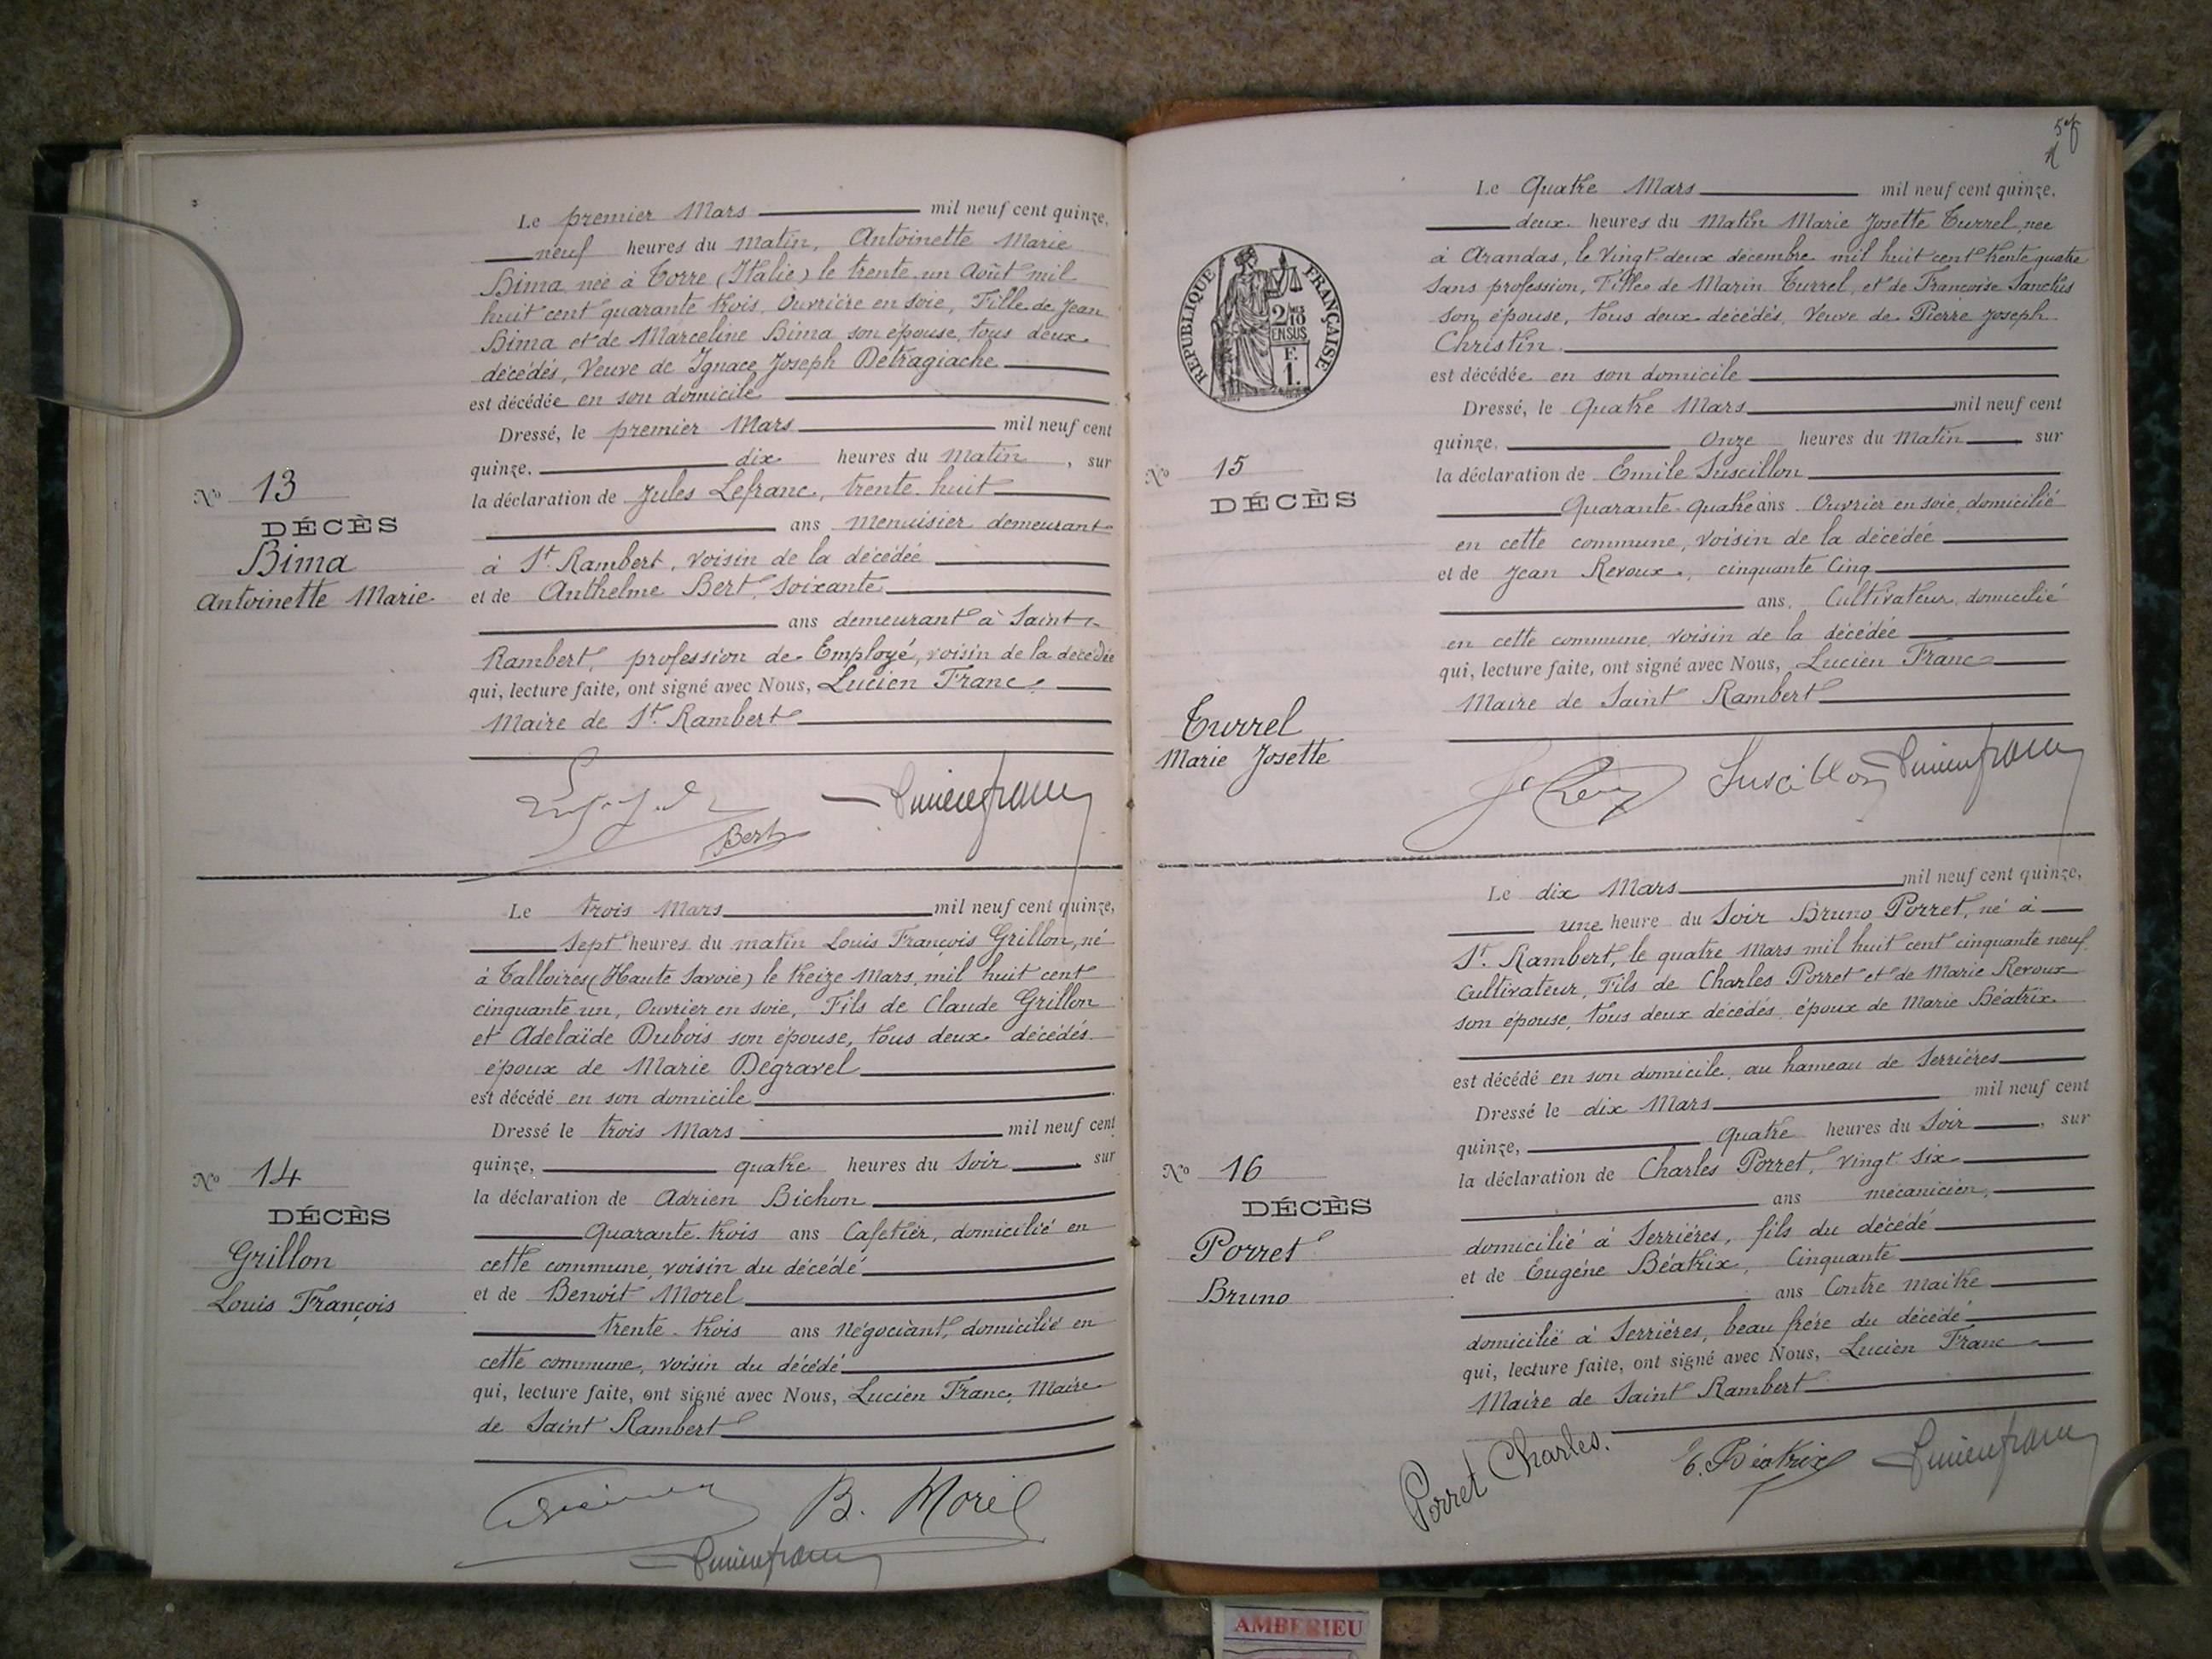 Le premier Mars mil neuf cent quinze,
neuf heures du Matin, Antoinette Marie
Bima née à Torre (Italie) le trente un Août mil
huit cent quarante trois, Ouvrière en soie, Fille de Jean
Bima et de Marceline Bima son épouse, tous deux
décédés, Veuve de Ignace Joseph Détragiache
est décédée en son domicile
Dressé, le premier Mars mil neuf cent
quinze, dix heures du Matin, sur
la déclaration de Jules Lefranc, trente-huit
ans Menuisier demeurant
à St Rambert, voisin de la décédée
et de Anthelme Bert, soixante
ans demeurant à Saint-
Rambert, profession de Employé, voisin de la décédée
qui, lecture faite, ont signé avec Nous, Lucien Franc,
Maire de St Rambert
No 13
DÉCÈS
Bima
Antoinette Marie
Bert
Lucien franc
Le trois Mars mil neuf cent quinze,
Sept heures du matin Louis François Grillon, né
à Talloires (Haute Savoie) le treize Mars, mil huit cent
cinquante un, Ouvrier en soie, Fils de Claude Grillon
et Adelaïde Dubois son épouse, tous deux décédés
époux de Marie Degravel
est décédé en son domicile
Dressé le trois Mars mil neuf cent
quinze, quatre heures du Soir, sur
la déclaration de Adrien Bichon
Quarante-trois ans Cafetier, domicilié en
cette commune, voisin du décédé
et de Benoit Morel
trente-trois ans Négociant, domicilié en
cette commune, voisin du décédé
qui, lecture faite, ont signé avec Nous, Lucien Franc, Maire
de Saint Rambert
No 14
DÉCÈS
Grillon
Louis François
B. Morel
Lucien franc
Le Quatre Mars mil neuf cent quinze,
deux heures du Matin Marie Josette Turrel, née
à Arandas, le Vingt-deux décembre mil huit cent trente quatre
Sans profession, Fille de Marin Turrel, et de Françoise Sanctus
son épouse, tous deux décédés, Veuve de Pierre Joseph
Christin
est décédée en son domicile
Dressé, le Quatre Mars mil neuf cent
quinze, Onze heures du Matin, sur
la déclaration de Emile Suscillon
Quarante-quatre ans Ouvrier en soie, domicilié
en cette commune, voisin de la décédée
et de Jean Revoux, cinquante Cinq
ans, Cultivateur, domicilié
en cette commune, voisin de la décédée
qui, lecture faite, ont signé avec Nous, Lucien Franc
Maire de Saint Rambert
RÉPUBLIQUE FRANÇAISE
2/10
EN SUS
F.
1.
No 15
DÉCÈS
Turrel
Marie Josette
Suscillon
Lucien franc
Le dix Mars mil neuf cent quinze,
une heure du Soir Bruno Porret, né à
St Rambert, le quatre Mars mil huit cent cinquante neuf
Cultivateur, Fils de Charles Porret et de Marie Revoux
son épouse, tous deux décédés, époux de Marie Béatrix
est décédé en son domicile, au hameau de Serrières
Dressé le dix Mars mil neuf cent
quinze, Quatre heures du Soir, sur
la déclaration de Charles Porret, Vingt-Six
ans mécanicien,
domicilié à Serrières, fils du décédé
et de Eugène Béatrix, Cinquante
ans Contre maître
domicilié à Serrières, beau frère du décédé
qui, lecture faite, ont signé avec Nous, Lucien Franc
Maire de Saint Rambert
No 16
DÉCÈS
Porret
Bruno
Porret Charles.
E. Béatrix
Lucien franc
AMBERIEU